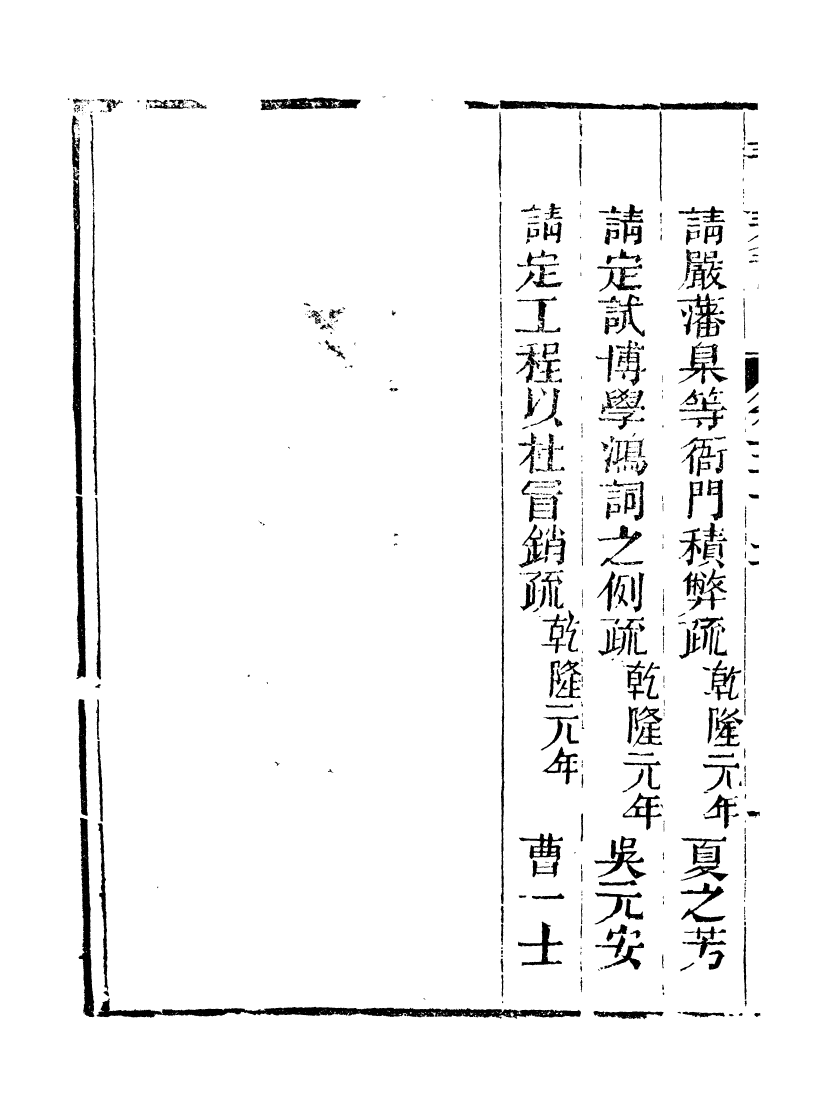 請嚴藩臬等衙門積弊疏乾隆元年 夏之芳
請定試博學鴻詞之例疏乾隆元年 吳元安
請定工程以杜冒銷疏乾隆元年 曹一士